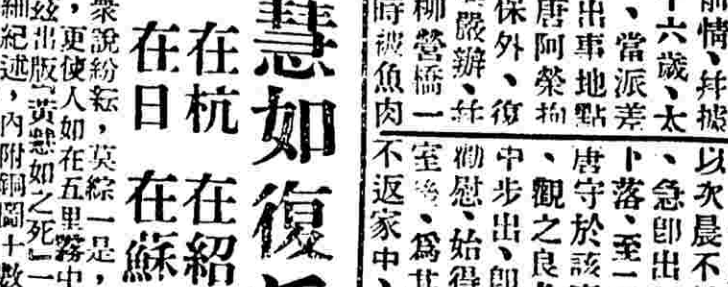 情、據
十六歲、太
、當派差
出事地點
唐阿榮拘
保外、復
嚴辦、並
柳營橋一
時被魚肉
以次晨不
、急卽出
卜落、至一
唐守於該
、觀之良
中步出、卽
勸慰、始得
室後、爲
不返家中、
慧如復
在杭 在紹
在日 在蘇
衆說紛紜，莫綜一是，
，更使人如在五里霧中
茲出版『黃慧如之死』一
細紀述，內附銅圖十數